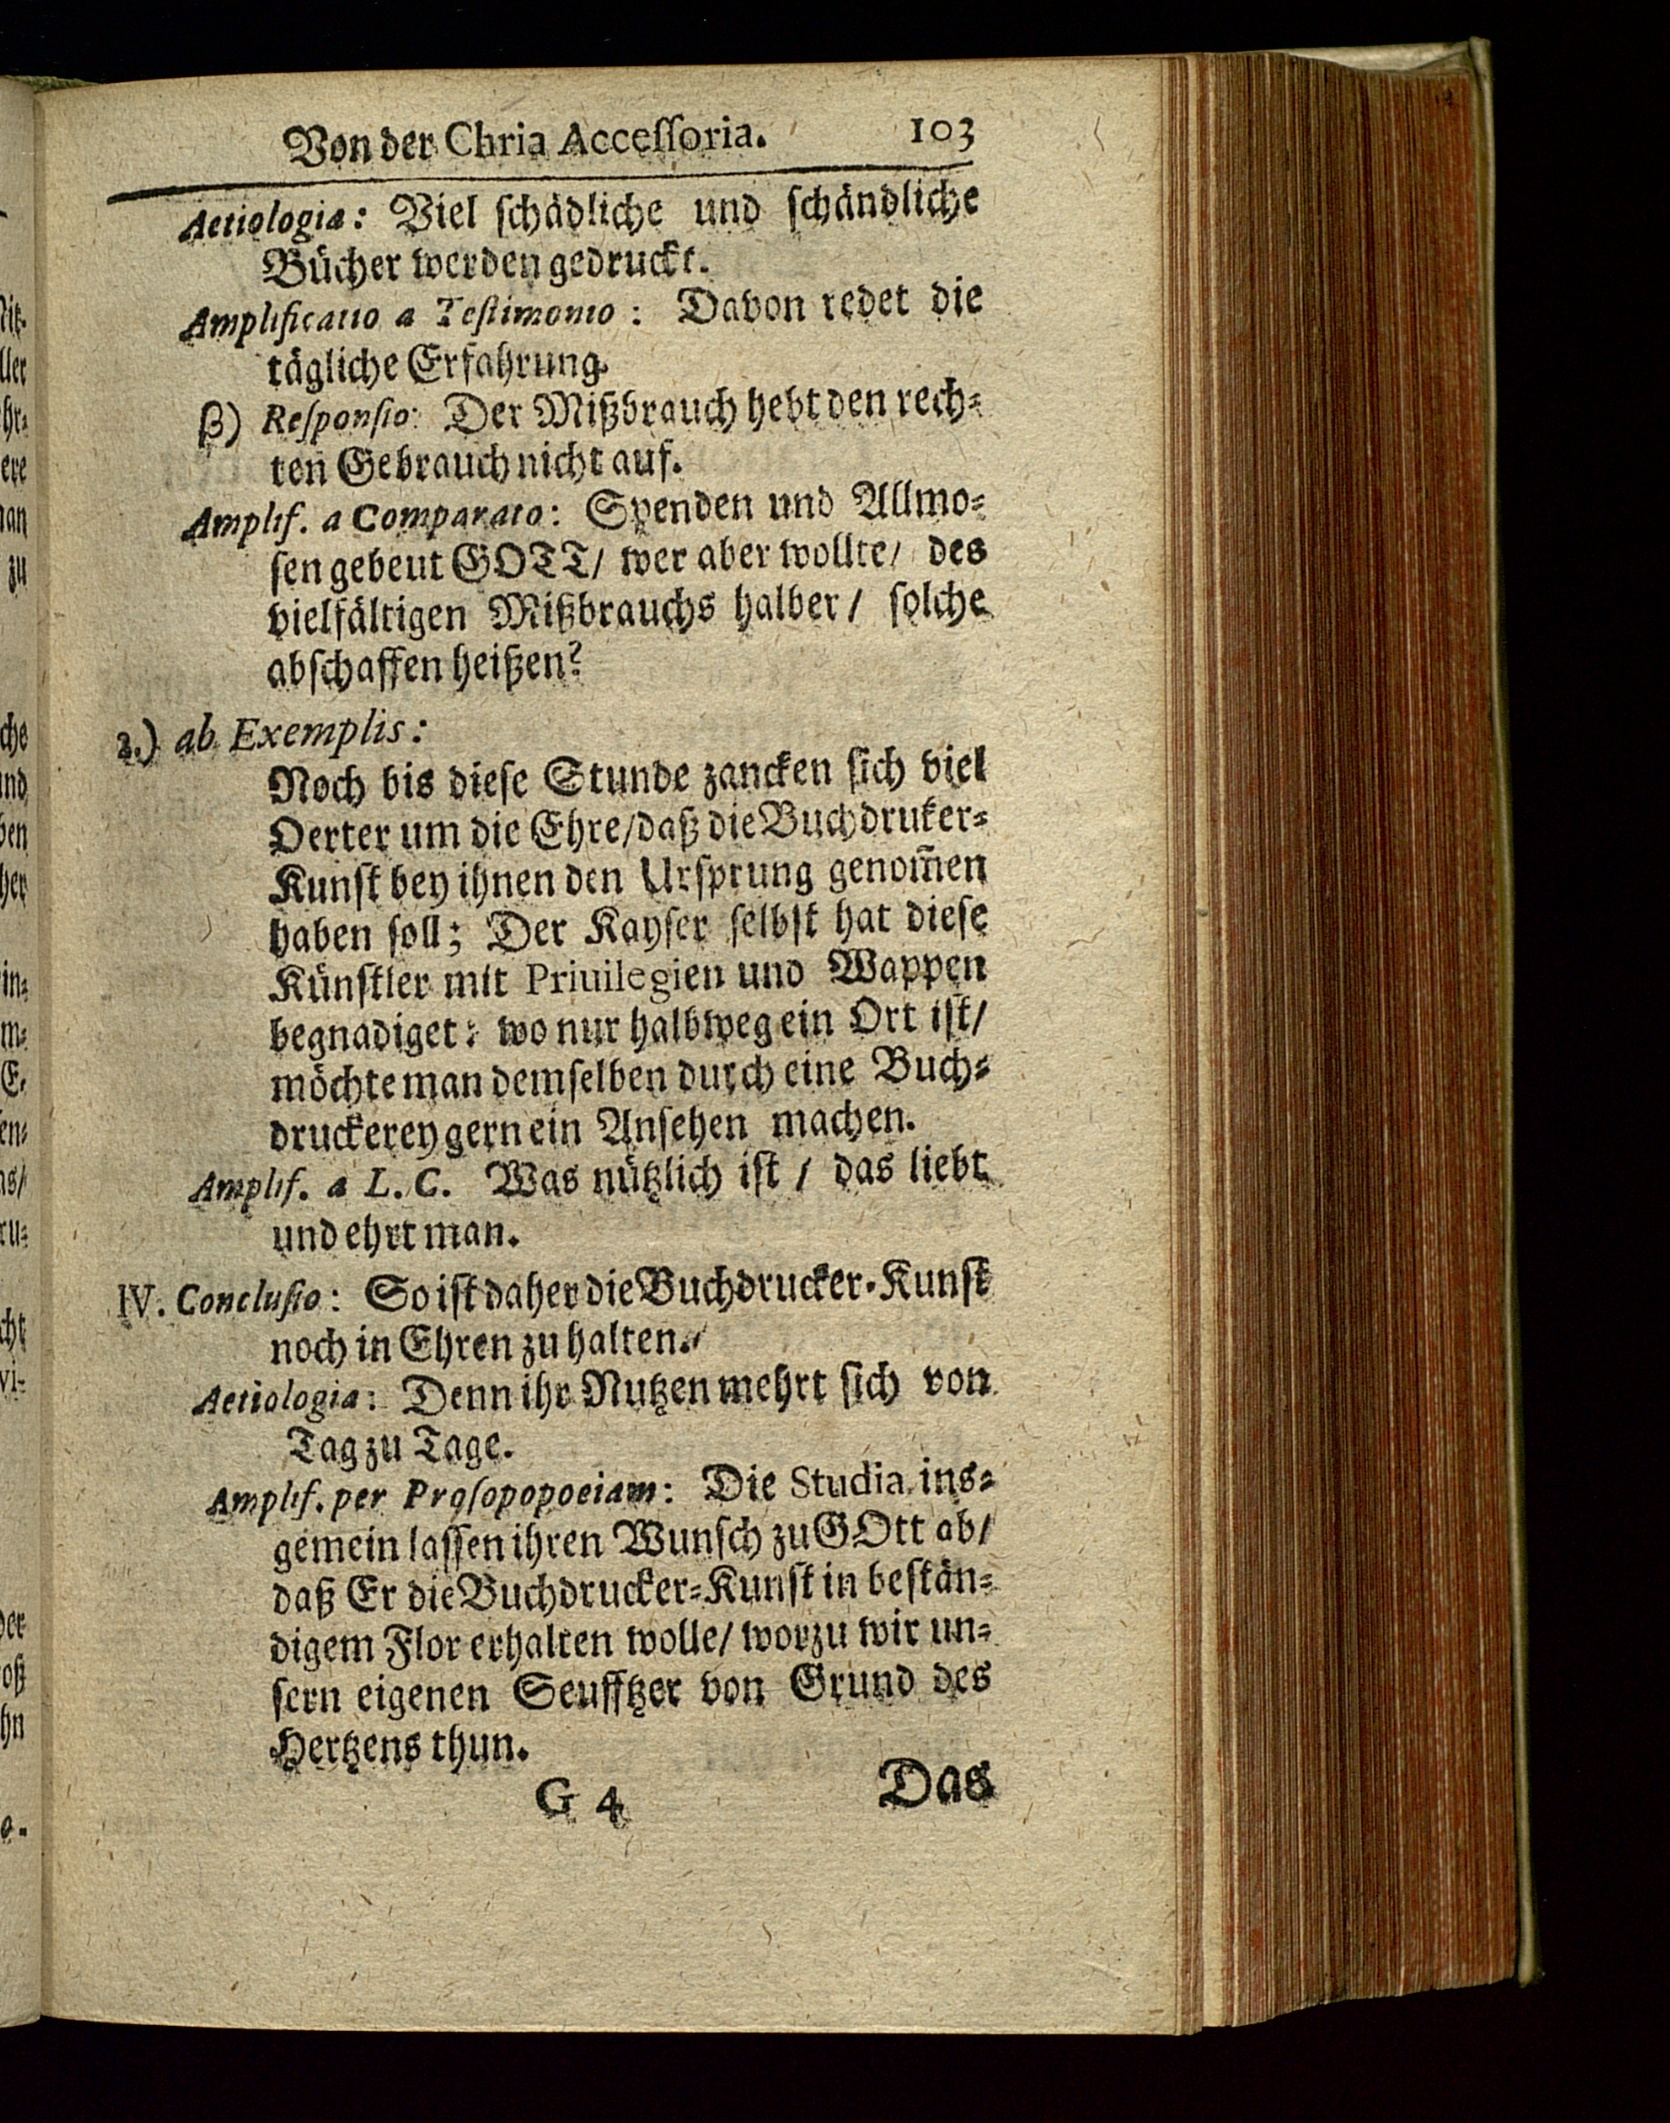 Von der Chria Accessoria. 103
Aetiologia: Viel schädliche und schändliche
Bücher werden gedruckt.
Amplificatio a Testimonio: Davon redet die
tägliche Erfahrung.
β) Responsio: Der Mißbrauch hebt den rech-
ten Gebrauch nicht auf.
Amplif. a Comparato: Spenden und Allmo-
sen gebeut GOTT/ wer aber wollte/ des
vielfältigen Mißbrauchs halber/ solche
abschaffen heißen?
2.) ab Exemplis:
Noch bis diese Stunde zancken sich viel
Oerter um die Ehre/daß die Buchdruker-
Kunst bey ihnen den Ursprung genom̃en
haben soll; Der Kayser selbst hat diese
Künstler mit Priuilegien und Wappen
begnadiget: wo nur halbweg ein Ort ist/
möchte man demselben durch eine Buch-
druckerey gern ein Ansehen machen.
Amplif. a L. C. Was nützlich ist / das liebt
und ehrt man.
IV. Conclusio: So ist daher die Buchdrucker-Kunst
noch in Ehren zu halten.
Aetiologia: Denn ihr Nutzen mehrt sich von
Tag zu Tage.
Amplif. per Prosopopoeiam: Die Studia ins-
gemein lassen ihren Wunsch zu GOtt ab/
daß Er die Buchdrucker-Kunst in bestän-
digem Flor erhalten wolle/ worzu wir un-
sern eigenen Seufftzer von Grund des
Hertzens thun.
G 4 Das